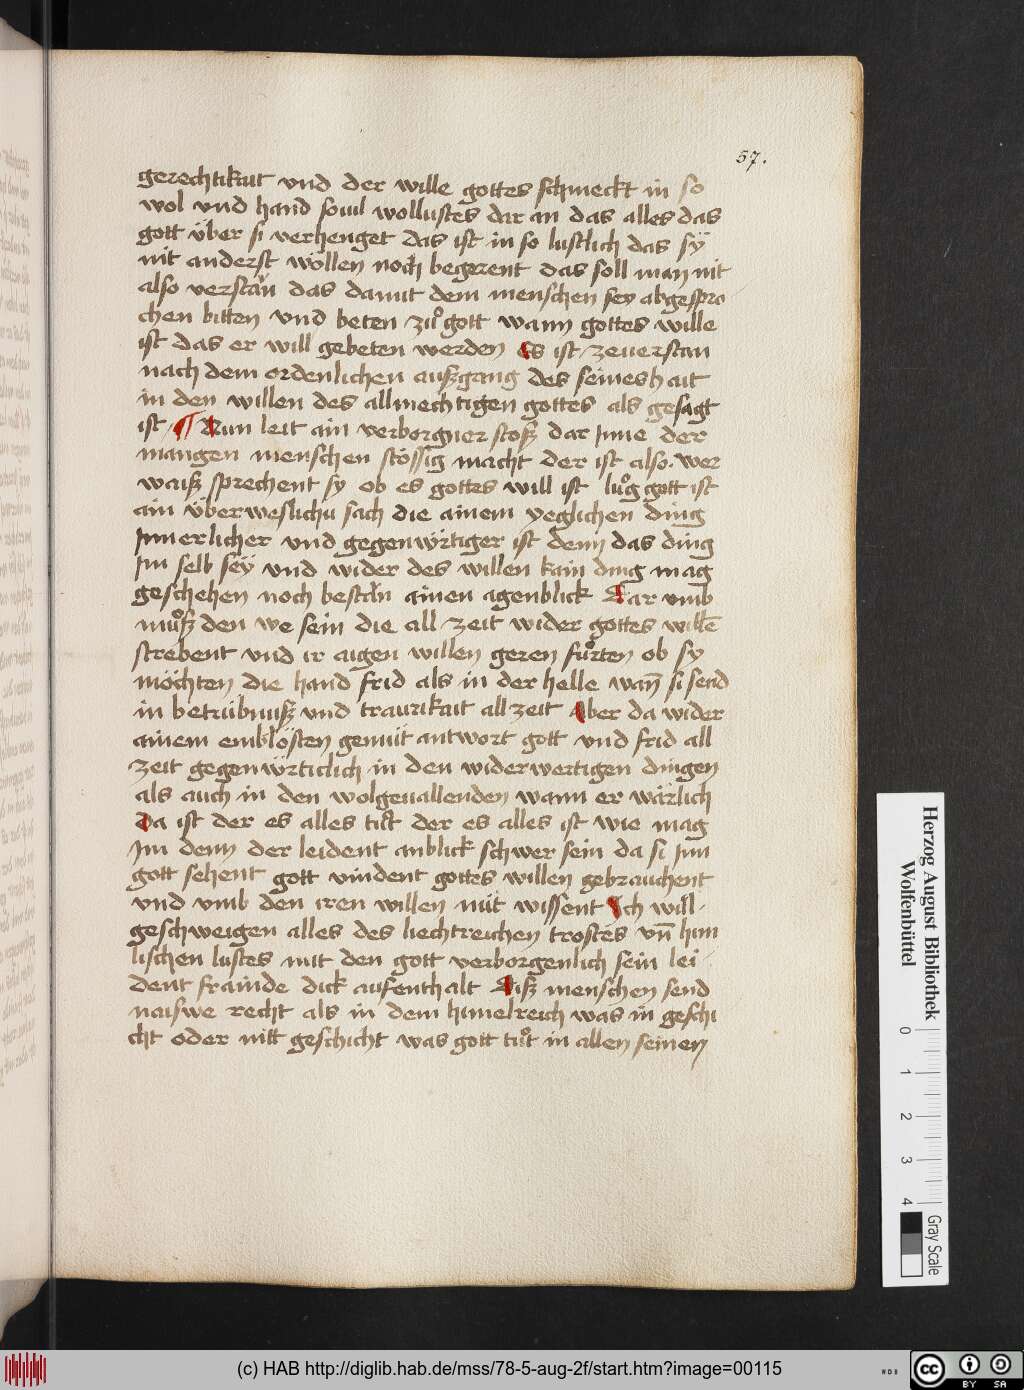 57.
gerechtikait vnd der wille gottes schmeckt in so
wol vnd hand souil wollustes dar an das alles das
gott über si verhenget das ist in so lustlich das sÿ
nit anderst wöllen noch begerent das soll man nit
also verstän das damit dem menschen sey abgespro
chen bitten vnd beten zuͦ gott wann gottes wille
ist das er will gebeten werden Es ist zeuerstan
nach dem ordenlichen außgang des seineshait
in den willen des allmechtigen gottes als gesagt
ist ¶ Nun leit ain verborgner stoß dar Inne der
mangen menschen stössig macht der ist also. Wer
waiß sprechent sy ob es gottes will ist luͦg gott ist
ain überweslichu sach die ainem yeglichen ding
Innerlicher vnd gegenwirtiger ist denn das ding
Im selb seÿ vnd wider des willen kain ding mag
geschehen noch bestän ainen agenblick Dar vmb
muͦß den we sein die all zeit wider gottes willē
strebent vnd ir aigen willen geren fuͦrten ob sy
möchten die hand frid als in der helle wan̄ si send
in betrübnuß vnd traurikait all zeit Aber da wider
ainem emblösten gemüt antwort gott vnd frid all
zeit gegenwirticlich in den widerwertigen dingen
als auch in den wolgeuallenden wann er wärlich
Da ist der es alles tuͦt der es alles ist wie mag
Im denn der leident anblick schwer sein da si Inn
gott sehent gott vindent gottes willen gebrauchent
vnd vmb den iren willen nüt wissent Ich will
geschweigen alles des liechtreichen trostes vn̄ him
lischen lustes mit den gott verborgenlich sein lei
dent frainde dick aufenthalt Diß menschen send
naiswe recht als in dem himelreich was in geschi
cht oder nitt geschicht was gott tuͦt in allen seinen
Herzog August Bibliothek
Wolfenbüttel
0 1 2 3 4
Gray Scale
(c) HAB http://diglib.hab.de/mss/78-5-aug-2f/start.htm?image=00115
WDB
cc BY SA